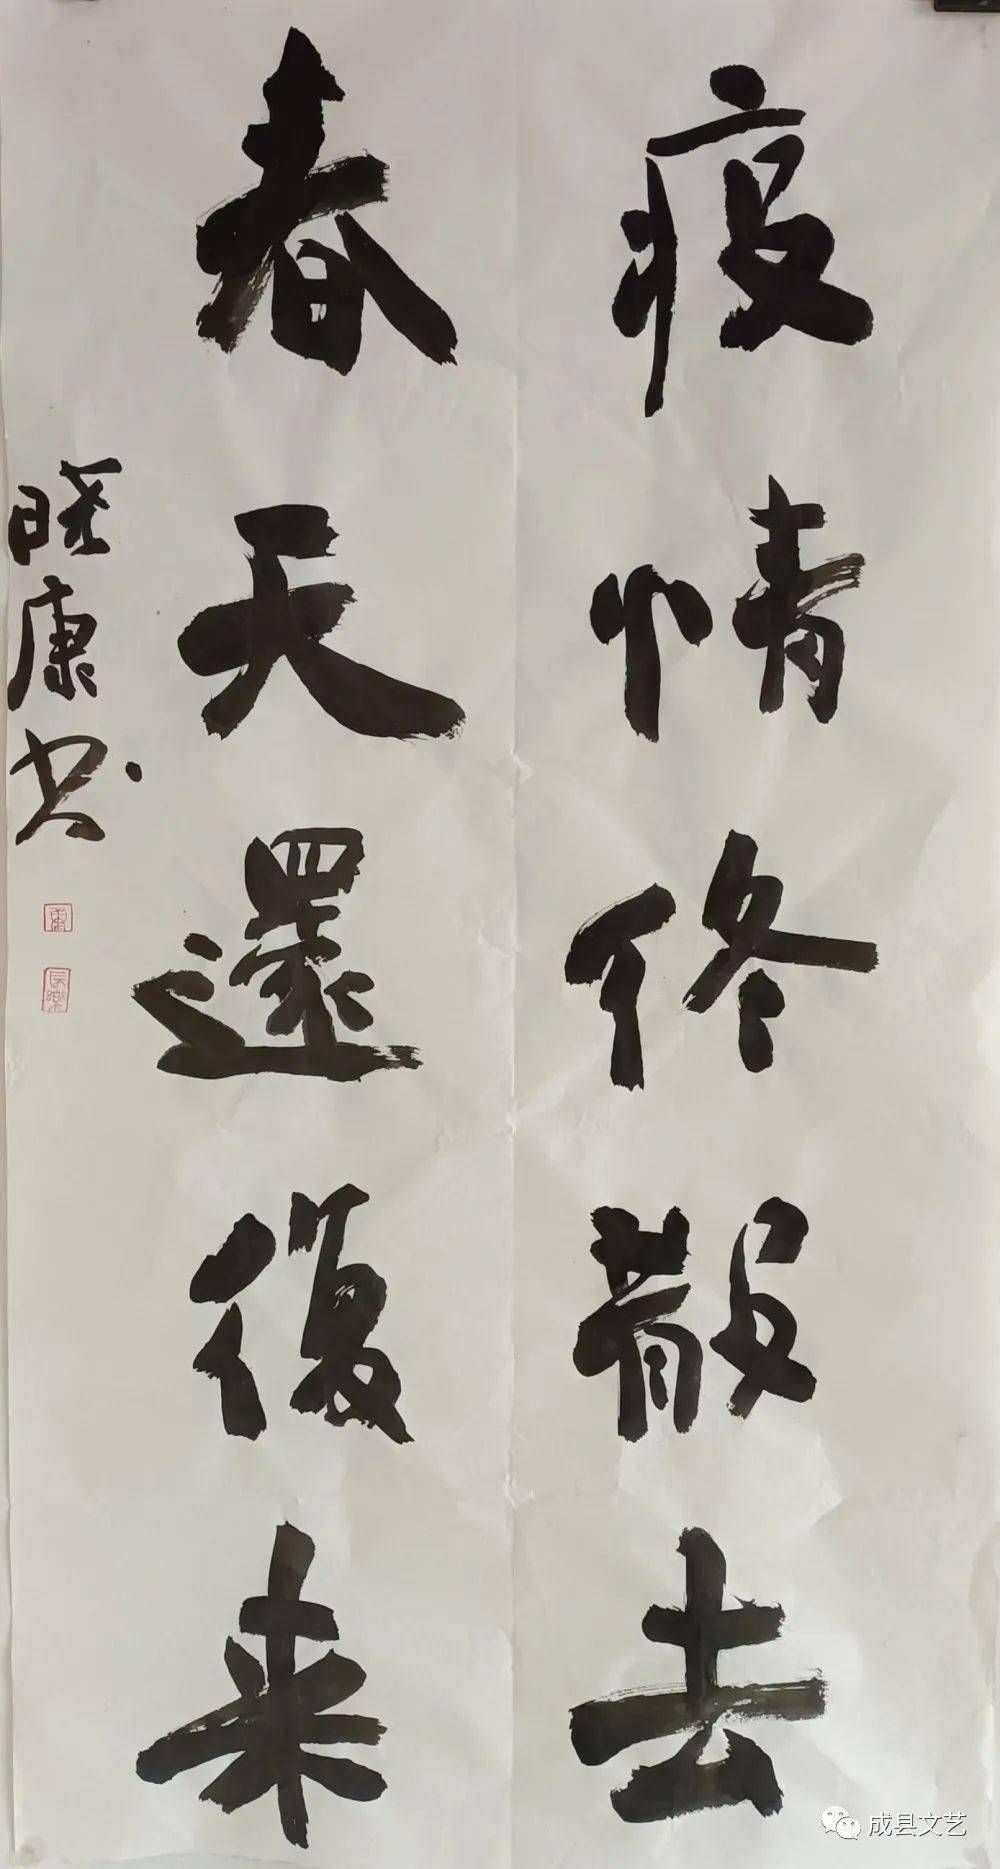 疫情终散去
春天還復来
晓康书
長樂
成县文艺